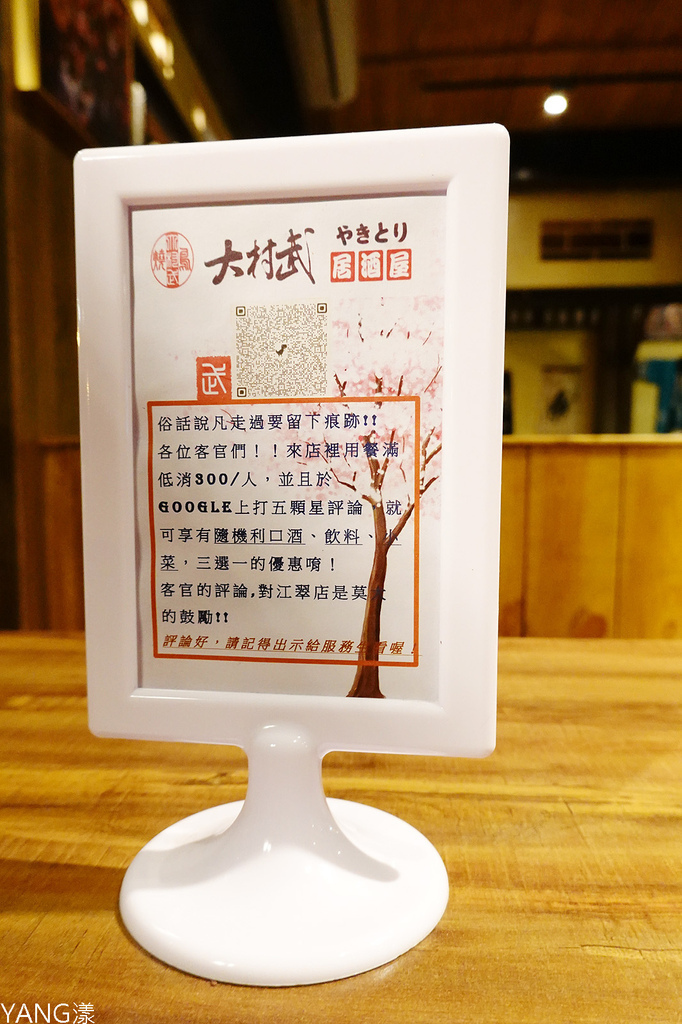 大村武
やきとり
居酒屋
武
俗話說凡走過要留下痕跡!!
各位客官們！！來店裡用餐滿
低消300/人，並且於
GOOGLE上打五顆星評論，就
可享有隨機利口酒、飲料、小
菜，三選一的優惠唷！
客官的評論,對江翠店是莫大
的鼓勵!!
評論好，請記得出示給服務生看喔！
YANG漾